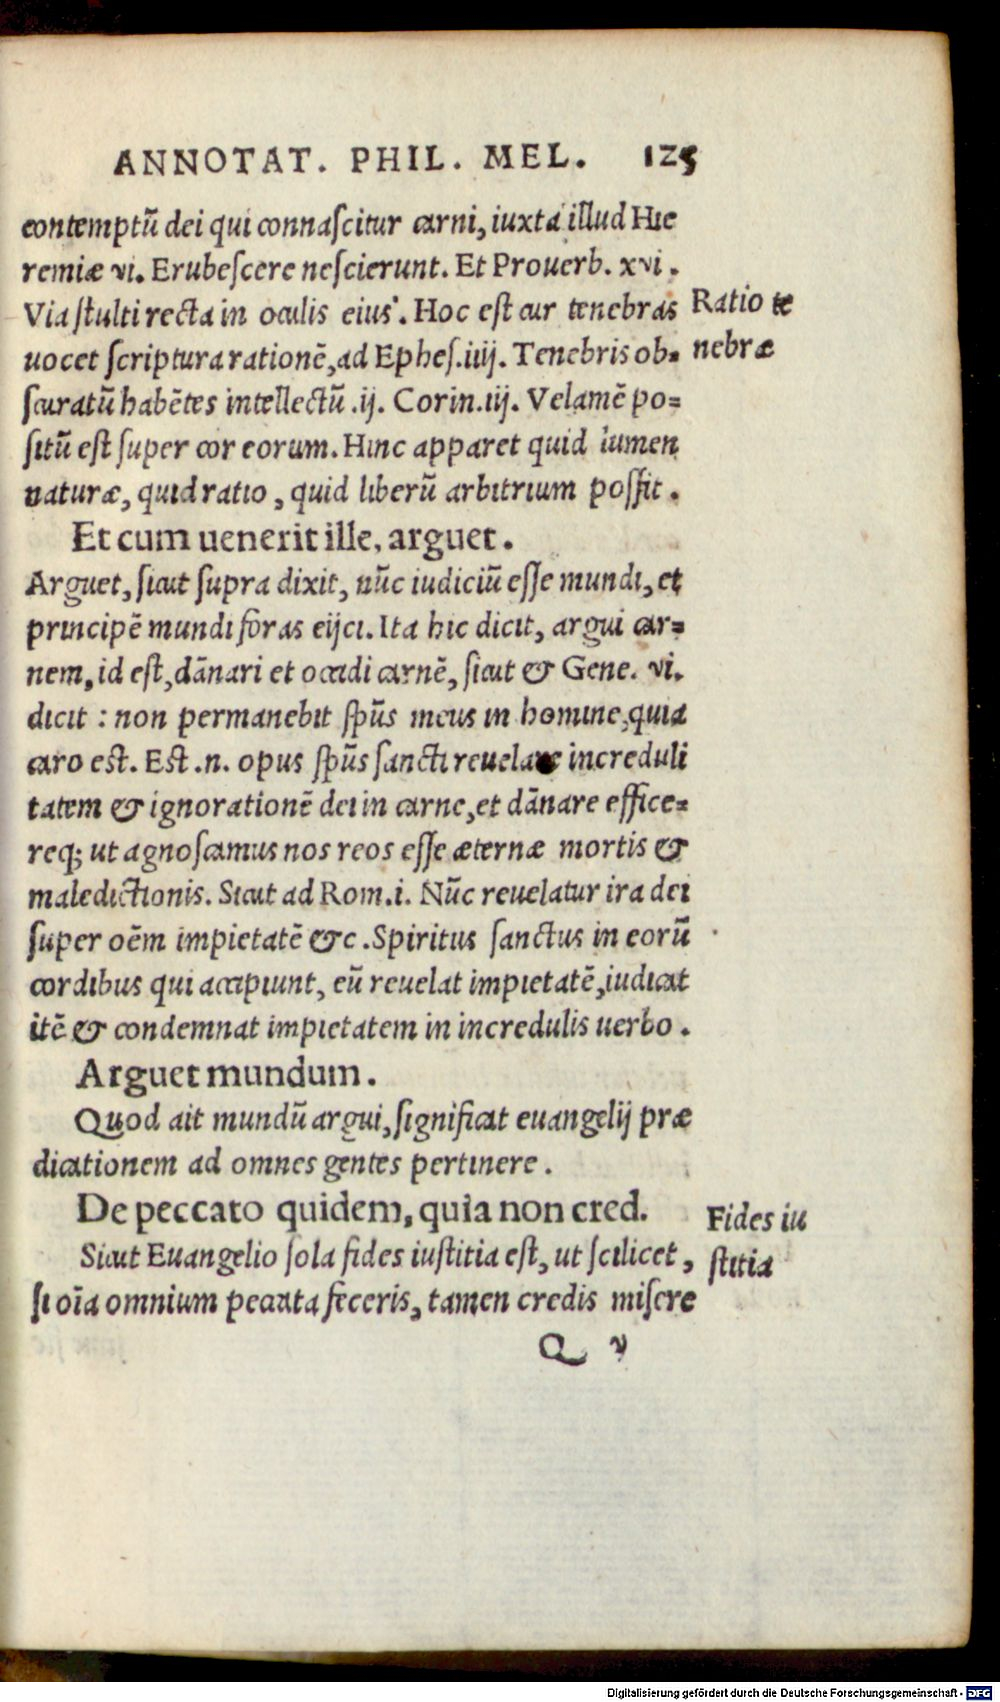 ANNOTAT. PHIL. MEL. 125
contemptū dei qui connaſcitur carni, iuxta illud Hie
remiæ vi. Erubeſcere neſcierunt. Et Prouerb. xvi.
Via ſtulti recta in oculis eius. Hoc eſt cur tenebras
uocet ſcriptura rationē, ad Epheſ. iiij. Tenebris ob=
ſcuratū habētes intellectū .ij. Corin. iij. Velamē po=
ſitū eſt ſuper cor eorum. Hinc apparet quid lumen
naturæ, quid ratio, quid liberū arbitrium poſſit.
Ratio te
nebræ
Et cum uenerit ille, arguet.
Arguet, ſicut ſupra dixit, nūc iudiciū eſſe mundi, et
principē mundi foras eijci. Ita hic dicit, argui car=
nem, id eſt, dānari et occidi carnē, ſicut & Gene. vi.
dicit : non permanebit ſpūs meus in homine, quia
caro eſt. Eſt .n. opus ſpūs ſancti reuelare increduli
tatem & ignorationē dei in carne, et dānare effice=
req; ut agnoſcamus nos reos eſſe æternæ mortis &
maledictionis. Sicut ad Rom. i. Nūc reuelatur ira dei
ſuper oēm impietatē &c. Spiritus ſanctus in eorū
cordibus qui accipiunt, eū reuelat impietatē, iudicat
itē & condemnat impietatem in incredulis uerbo.
Arguet mundum.
Quod ait mundū argui, ſignificat euangelij præ
dicationem ad omnes gentes pertinere.
De peccato quidem, quia non cred.
Sicut Euangelio ſola fides iuſtitia eſt, ut ſcilicet,
ſi oīa omnium peccata feceris, tamen credis miſere
Fides iu
ſtitia
Q v
Digitalisierung gefördert durch die Deutsche Forschungsgemeinschaft - DFG